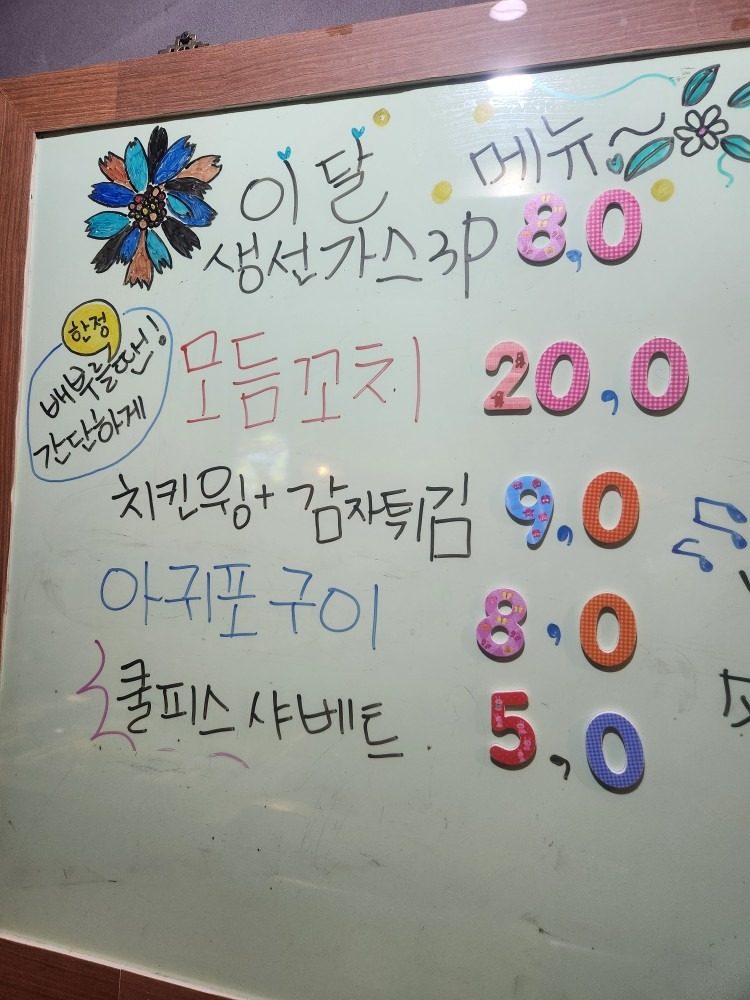 이달 메뉴~
생선가스 3P 8,0
한정
배부를땐!
간단하게
모듬꼬치 20,0
치킨윙+감자튀김 9,0
아귀포구이 8,0
쿨피스 샤베트 5,0